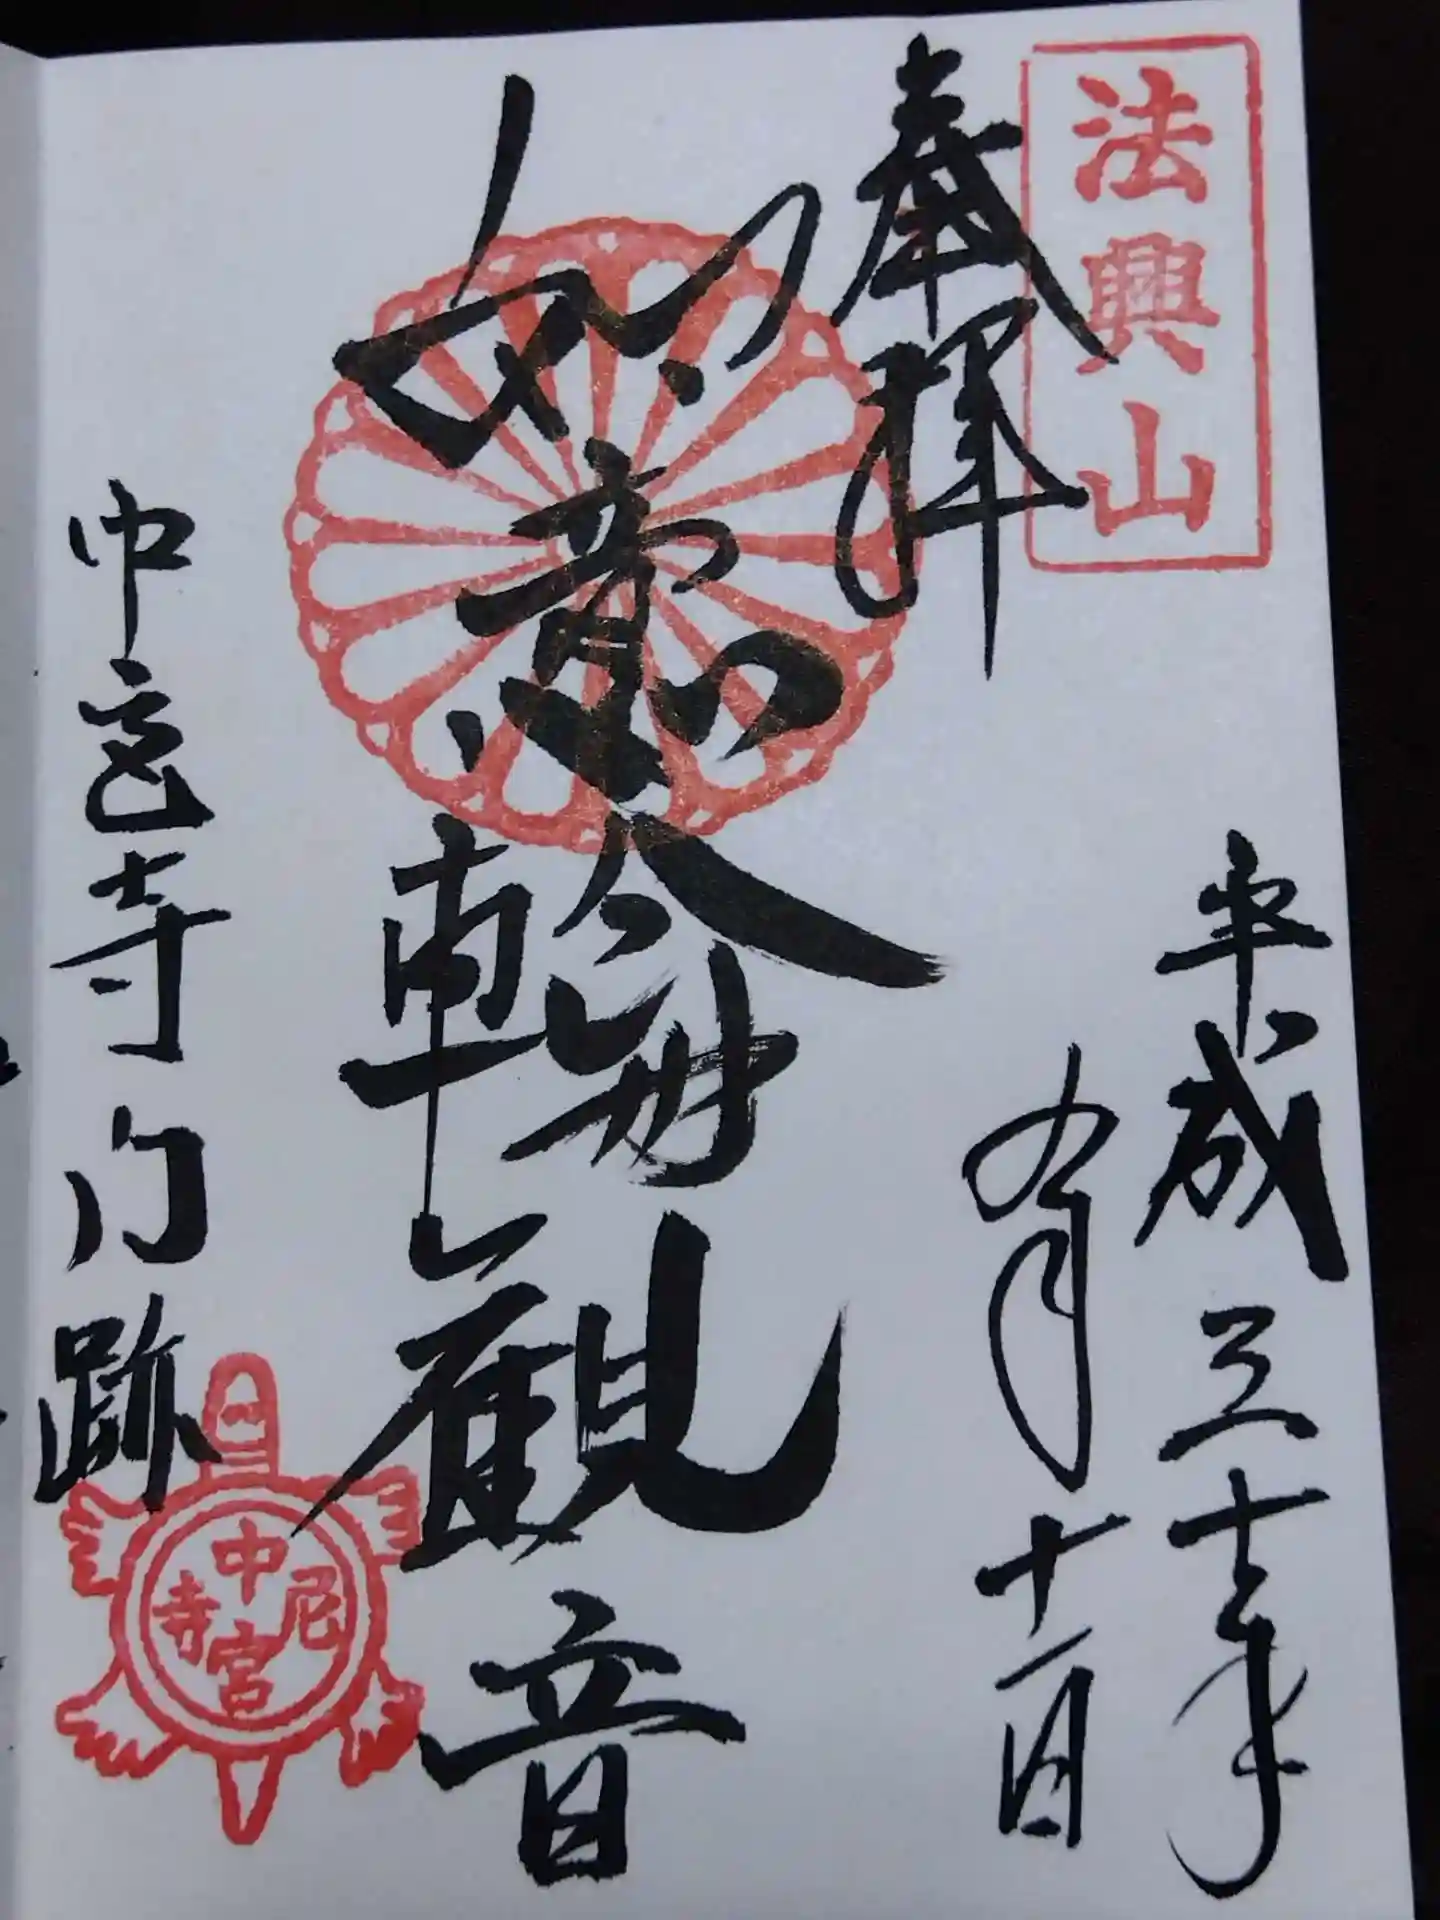 法興山
奉拝
平成三十年
九月十一日
如意輪観音
中宮寺門跡
中宮尼寺